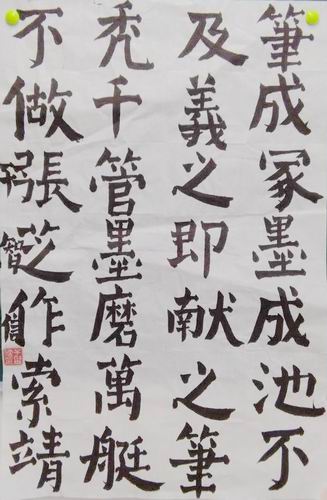 筆成冢墨成池不
及義之即献之筆
秃千管墨磨萬艇
不做張芝作索靖